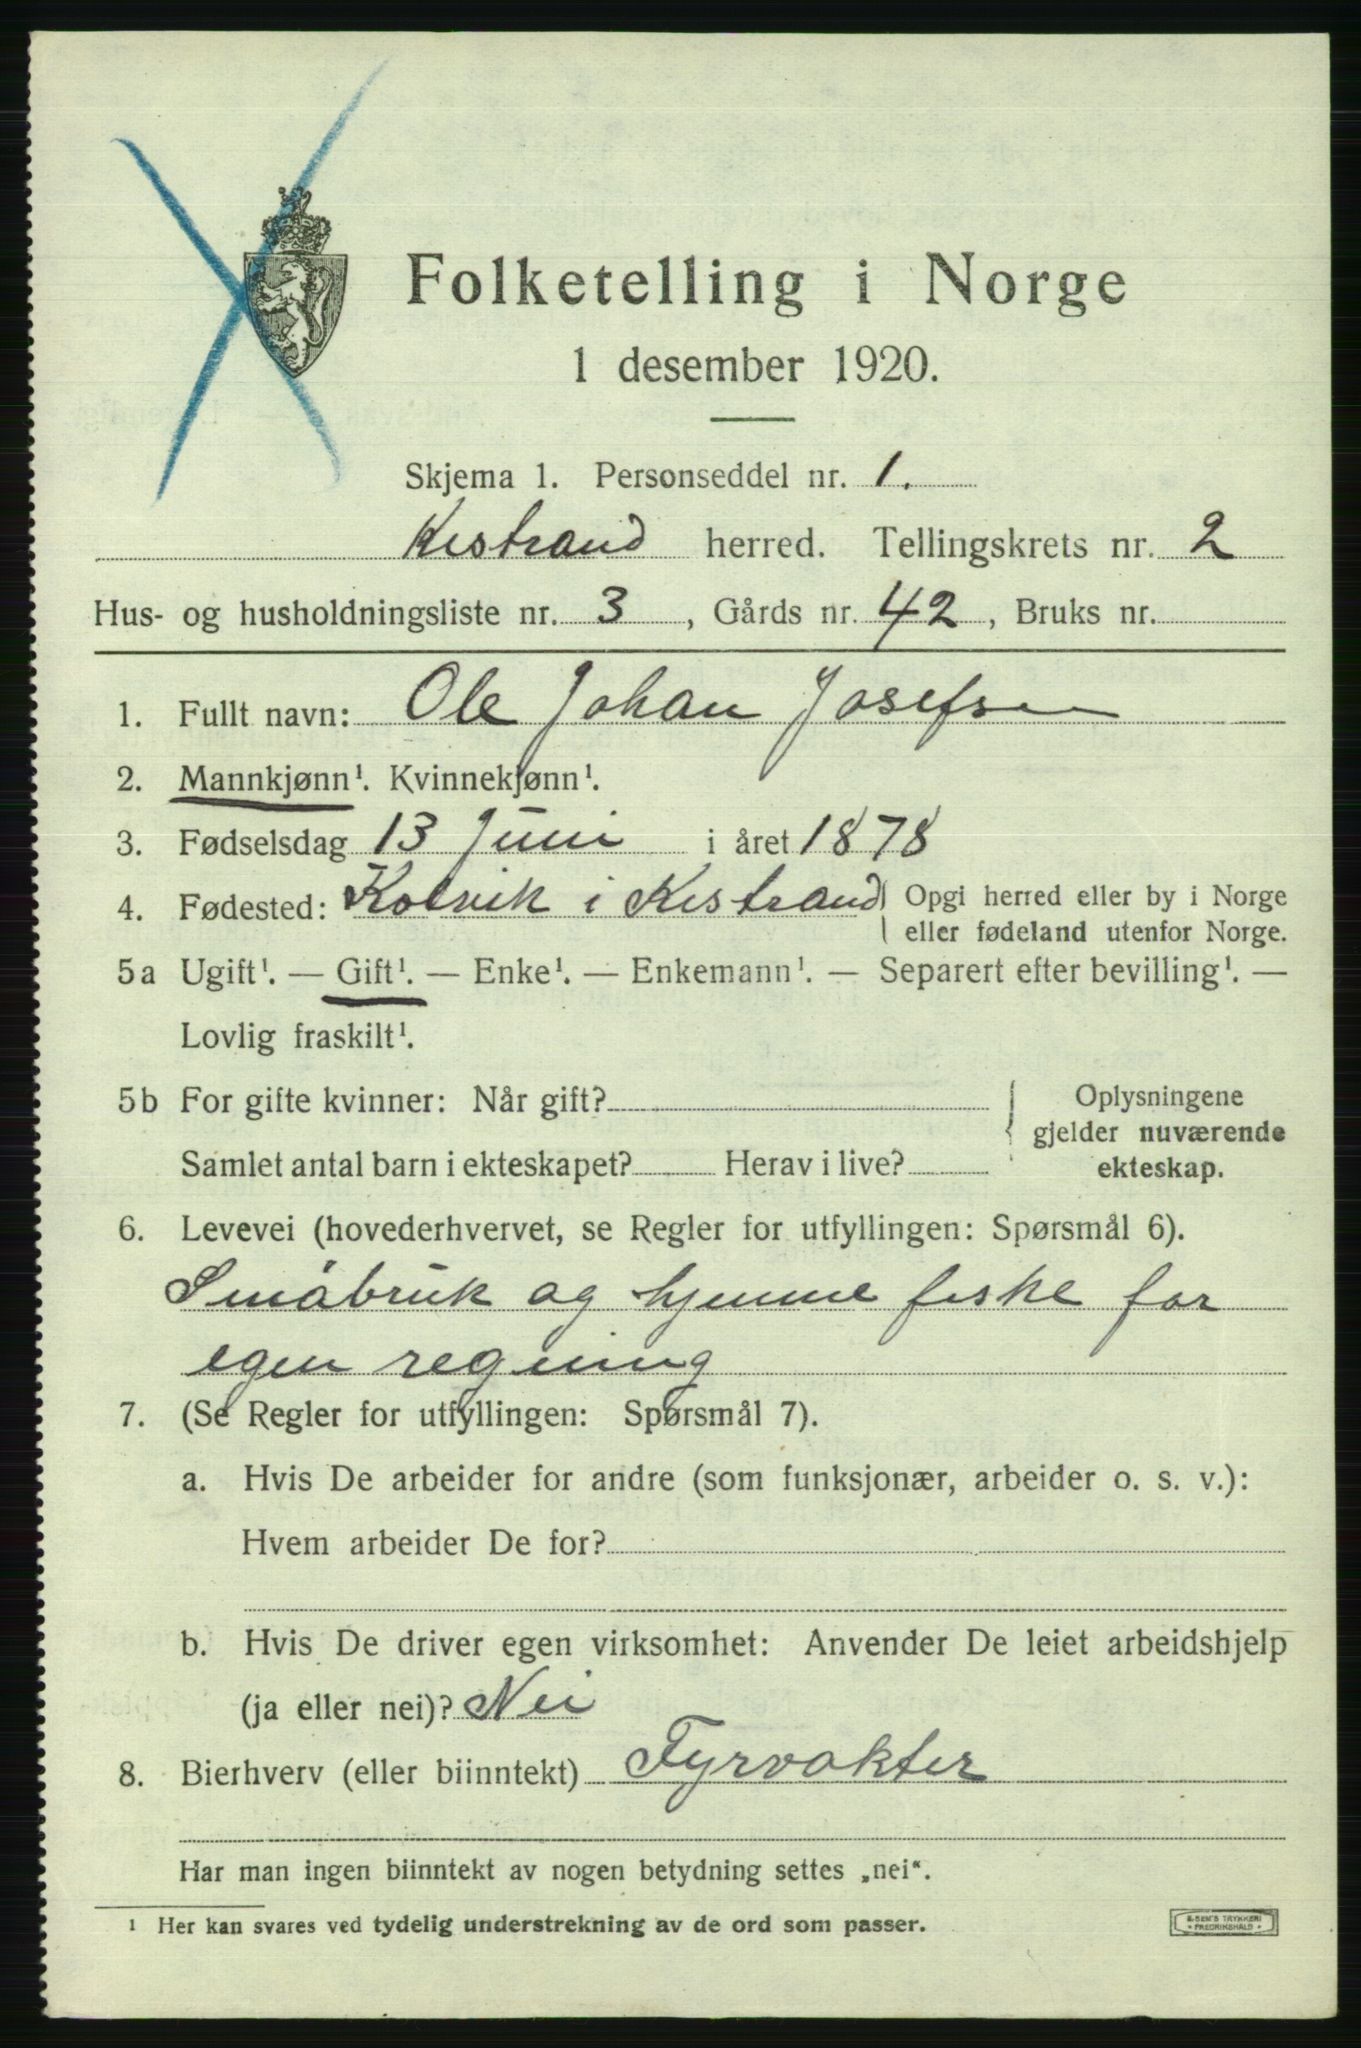 Folketelling i Norge
1 desember 1920.
Skjema 1. Personseddel nr. 1.
Kistrand herred. Tellingskrets nr. 2
Hus- og husholdningsliste nr. 3, Gårds nr. 42, Bruks nr.
1. Fullt navn: Ole Johan Josefsen
2. Mannkjønn¹. Kvinnekjønn¹.
3. Fødselsdag 13 Juni i året 1878
4. Fødested: Kolvik i Kistrand { Opgi herred eller by i Norge
eller fødeland utenfor Norge.
5a Ugift¹. — Gift¹. — Enke¹. — Enkemann¹. — Separert efter bevilling¹. —
Lovlig fraskilt¹.
5b For gifte kvinner: Når gift? { Oplysningene
gjelder nuværende
Samlet antal barn i ekteskapet? Herav i live? ekteskap.
6. Levevei (hovederhvervet, se Regler for utfyllingen: Spørsmål 6).
Småbruk og hjemme fiske for
egen regning
7. (Se Regler for utfyllingen: Spørsmål 7).
a. Hvis De arbeider for andre (som funksjonær, arbeider o. s. v.):
Hvem arbeider De for?
b. Hvis De driver egen virksomhet: Anvender De leiet arbeidshjelp
(ja eller nei)? Nei
8. Bierhverv (eller biinntekt) Fyrvakter
Har man ingen biinntekt av nogen betydning settes „nei“.
¹ Her kan svares ved tydelig understrekning av de ord som passer.
E. SEM'S TRYKKERI
• FREDRIKSHALD •